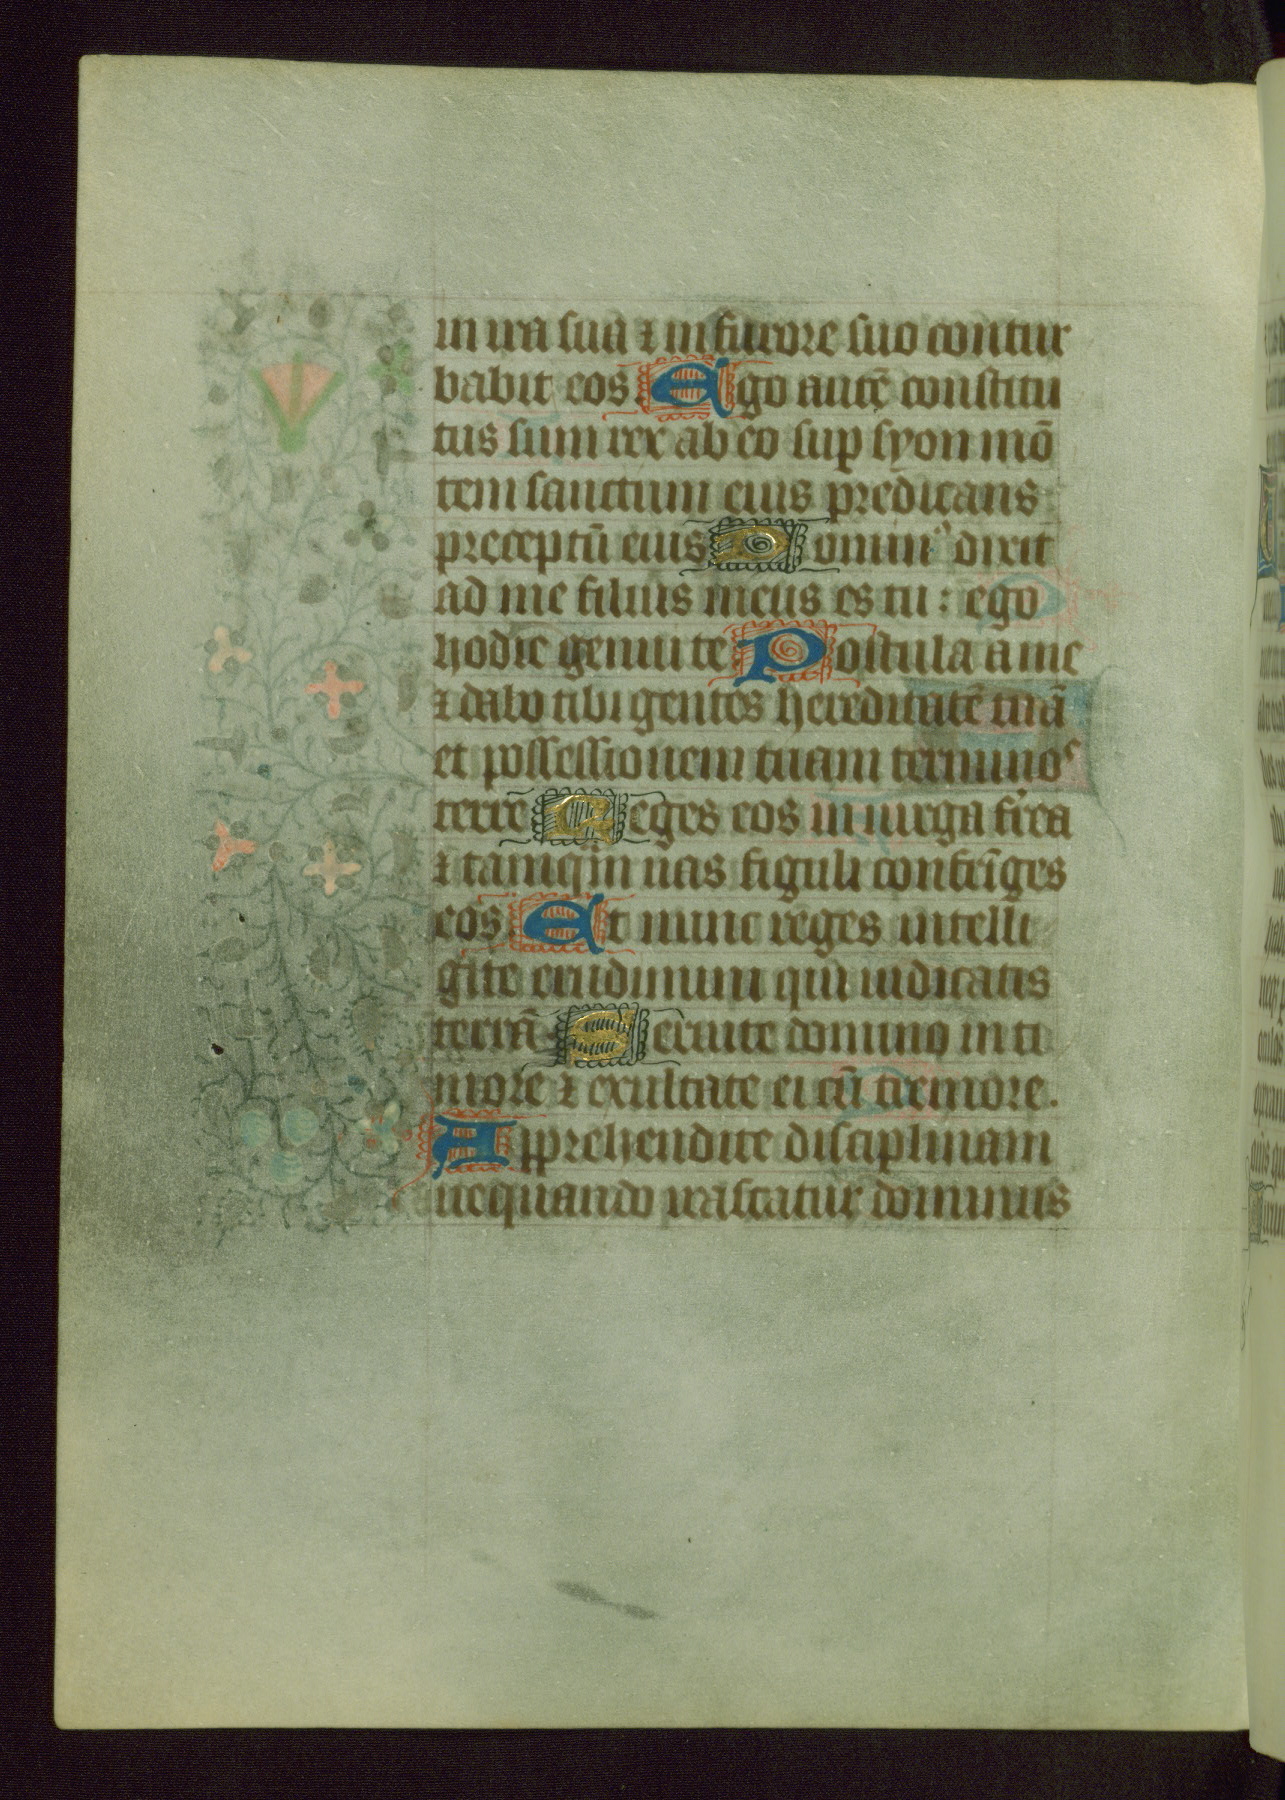 in ira sua ⁊ in furore suo contur
babit eos Ego autē constitu
tus sum rex ab eo sup syon mō
tem sanctum eius predicans
preceptū eius Dominꝰ dixit
ad me filius meus es tu : ego
hodie genui te Postula a me
⁊ dabo tibi gentes hereditatē tuā
et possessionem tuam terminos
terre Reges eos in uirga frea
⁊ tamqm uas figuli confrīges
eos Et nunc reges intelli
gite erudimini qui iudicatis
terrā Seruite domino in ti
more ⁊ exultate ei cū tremore.
Apprehendite disciplinam
nequando irascatur dominus